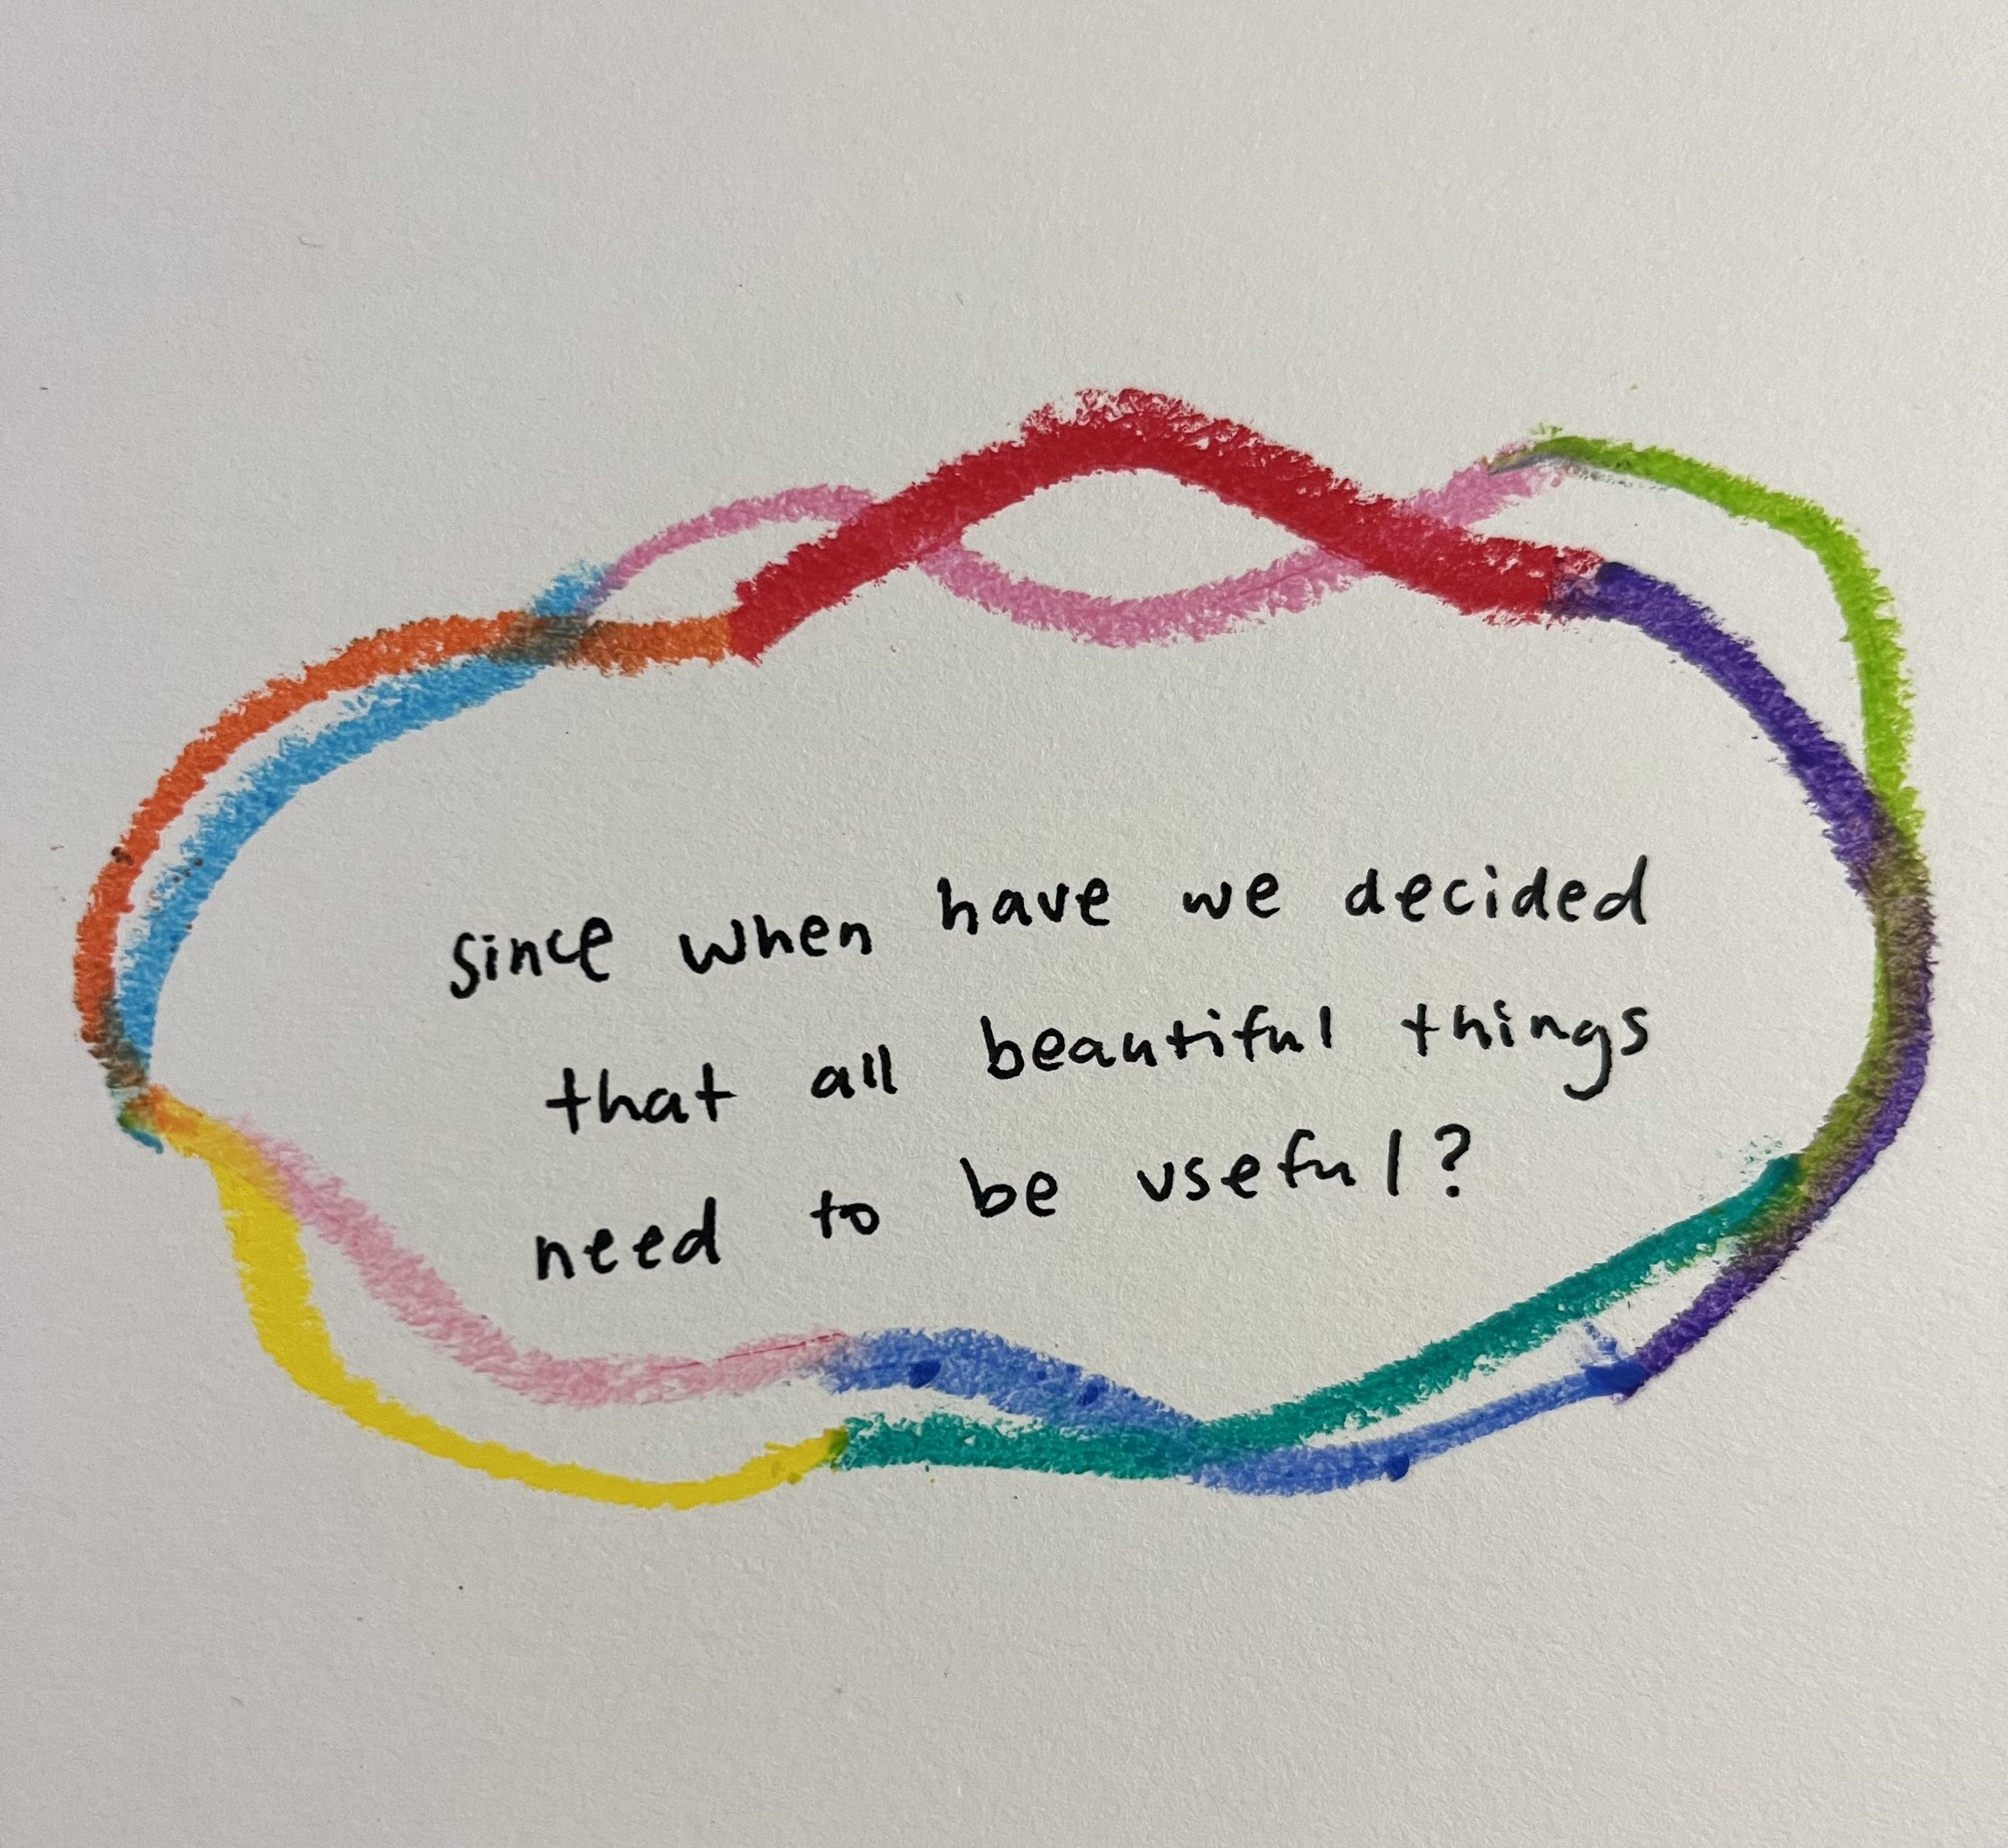 since when have we decided
that all beautiful things
need to be useful?